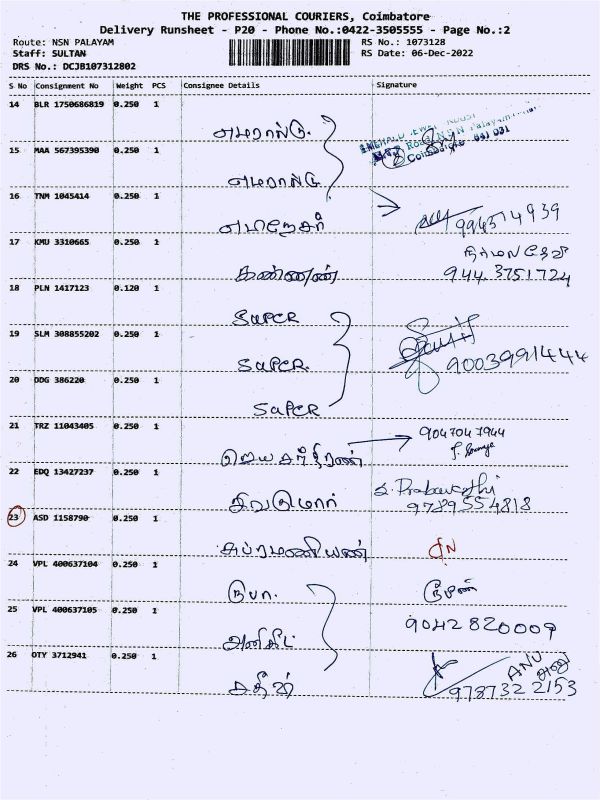 THE PROFESSIONAL COURIERS, Coimbatore
Delivery Runsheet - P20 - Phone No.:0422-3505555 - Page No.:2
Route: NSN PALAYAM
Staff: SULTAN
DRS No.: DCJB107312802
RS No.: 1073128
RS Date: 06-Dec-2022
S No Consignment No Weight PCS Consignee Details Signature
14 BLR 1750686819 0.250 1
எமரால்டு
15 MAA 567395390 0.250 1
எமரால்டு
16 TNM 1045414 0.250 1
994314939
17 KMU 3310665 0.250 1
கண்ணன் 944 3751724
18 PLN 1417123 0.120 1
SUPER
19 SLM 308855202 0.250 1
SUPER 9003991444
20 DDG 386220 0.250 1
SUPER
21 TRZ 11043405 0.250 1
9047047944
22 EDQ 13427237 0.250 1
சிவகுமார் S. Prabavathi
9789554818
23 ASD 1158790 0.250 1
சுப்ரமணியன்
24 VPL 400637104 0.250 1
ரூபா.
25 VPL 400637105 0.250 1
9042820009
26 OTY 3712941 0.250 1
ANU
அனு
978732 2153